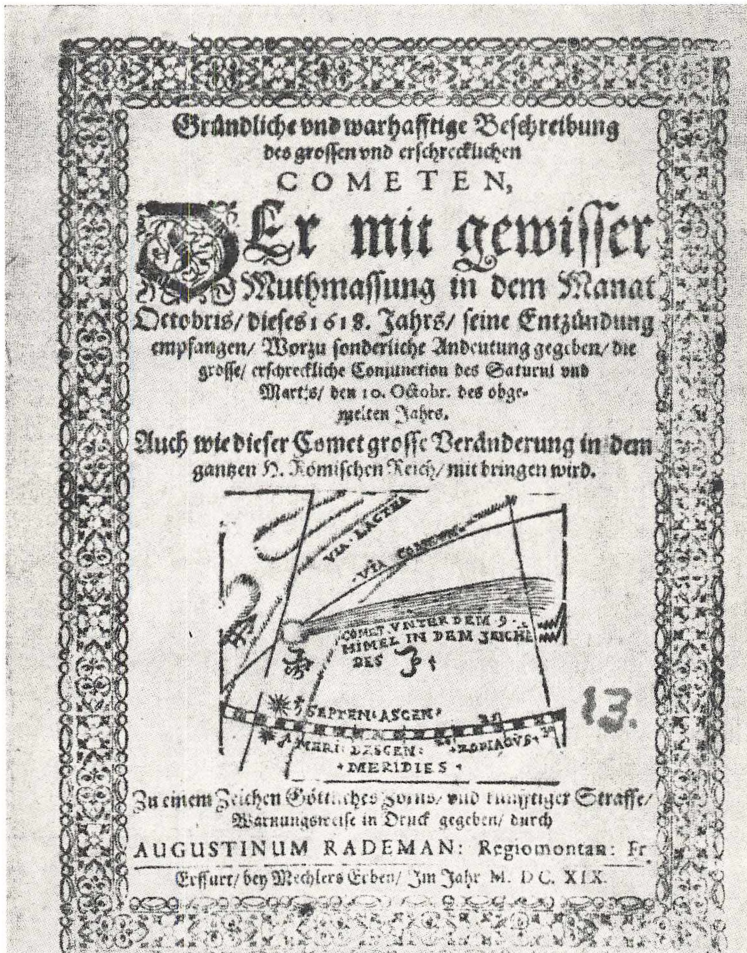 Gründliche vnd warhafftige Beschreibung
des grossen vnd erschrecklichen
COMETEN,
DEr mit gewisser
Muthmassung in dem Manat
Octobris/ dieses 1618. Jahrs/ seine Entzündung
empfangen/ Worzu sonderliche Andeutung gegeben/ die
grosse/ erschreckliche Conjunction des Saturni vnd
Martis/ den 10. Octobr. des obge-
melten Jahrs.
Auch wie dieser Comet grosse Veränderung in dem
gantzen H. Römischen Reich/ mit bringen wird.
VIA LACTEA
VIA COMETAE
COMET VNTER DEM 9
HIMEL IN DEM ZEICHE
DES
SEPTEN: ASCEN:
MERI: DESCEN: ZODIACVS
MERIDIES
13.
Zu einem Zeichen Göttliches Zorns/ vnd künfftiger Straffe/
Warnungsweise in Druck gegeben/ durch
AUGUSTINUM RADEMAN: Regiomontan: Fr
Erffurt/ bey Mechlers Erben/ Im Jahr M. DC. XIX.